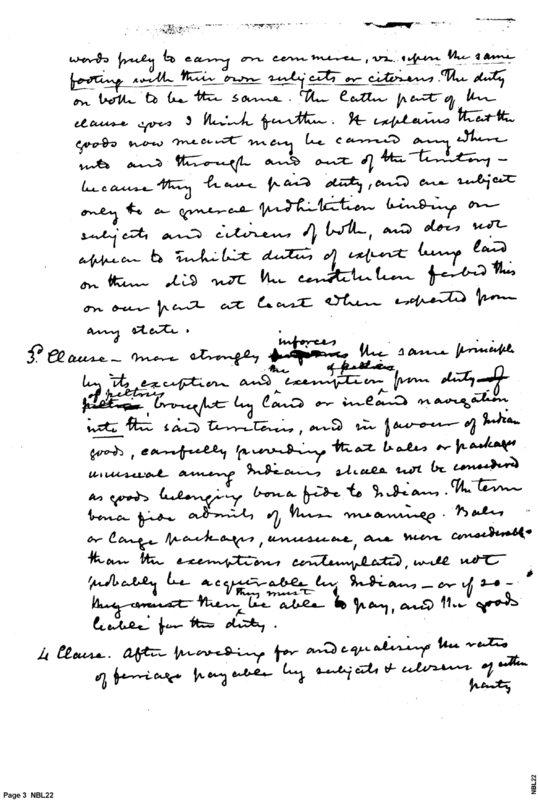 words freely to carry on commerce, vz. upon the same
footing with their own subjects or citizens. The duty
on both to be the same. The latter part of the
clause goes I think further. It explains that the
goods now meant may be carried any where
into and through and out of the territory –
because they have paid duty, and are subject
only to a general prohibition binding on
subjects and citizens of both, and does not
appear to inhibit duties of export being laid
on them did not the constitution forbid this
on our part at least when exported from
any state.
3d. Clause – more strongly inforces the same principle
by its exception and the exemption of peltries from duty
of peltries brought by land or inland navigation
into the said territories, and in favour of Indian
goods, carefully providing that bales or packages
unusual among Indians shall not be considered
as goods belonging bona fide to Indians. The term
bona fide admits of these meanings. Bales
or large packages, unusual, are more considerable
than the exemptions contemplated, will not
probably be acquirable by Indians – or if so –
they must then be able to pay, and the goods
liable for the duty.
4 Clause. After providing for and equalising the rates
of ferriage payable by subjects & citizens of either
party
Page 3 NBL22
NBL22